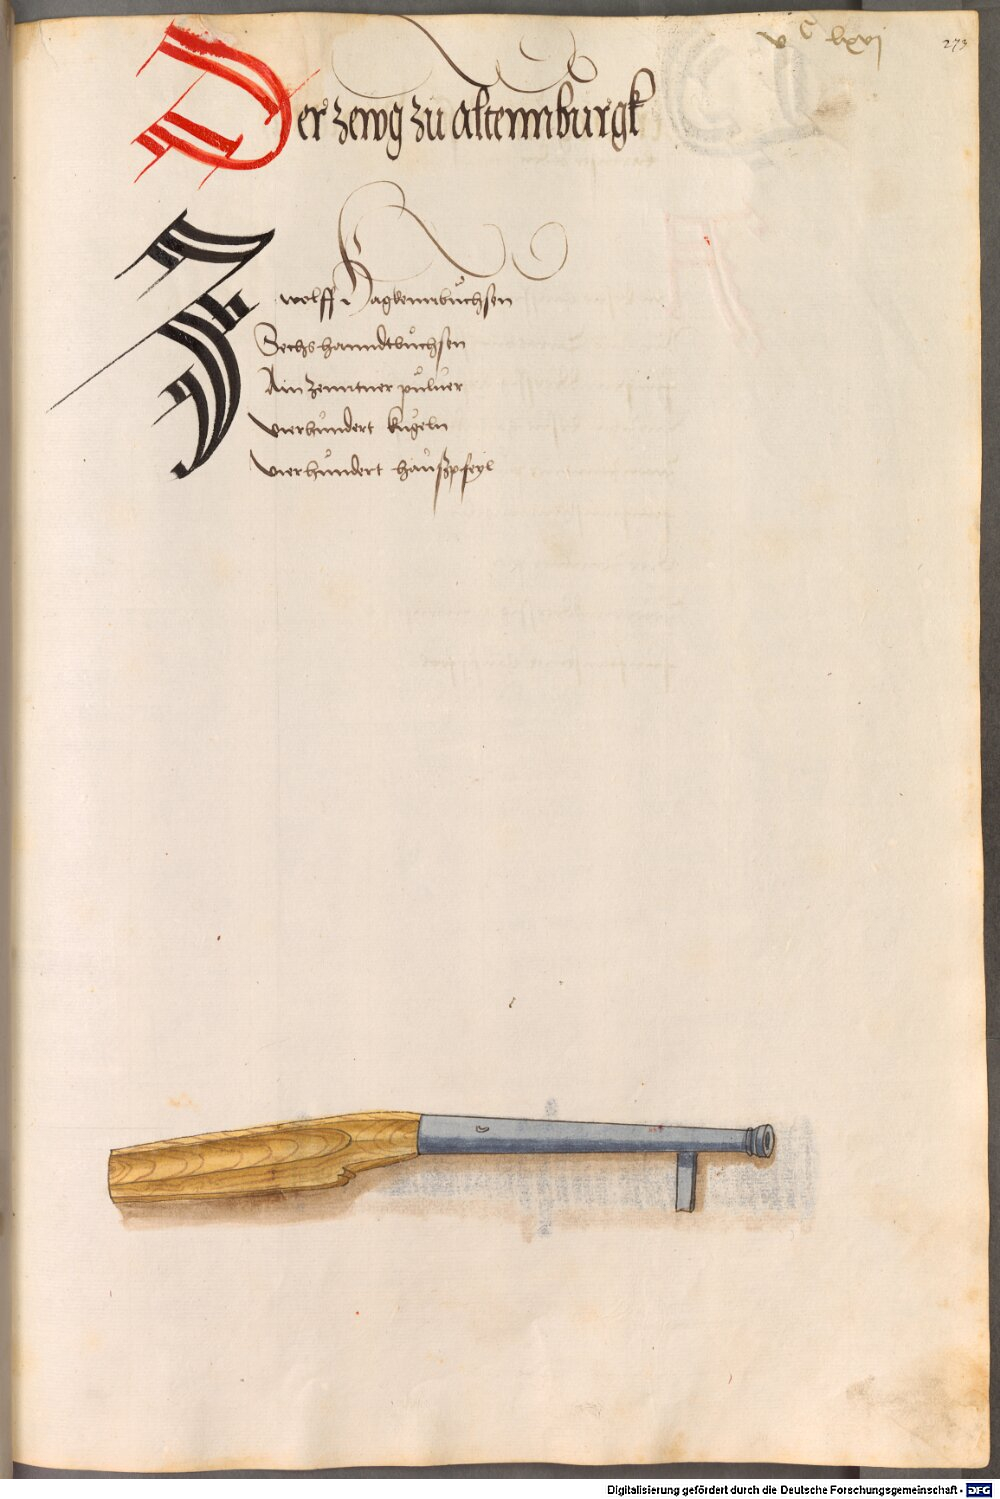 v C lxvj
273
Der zewg zu altennburgk
Zwolff Hagkennbuchsen
Sechs hanndtbuchsen
Ain zenntner puluer
vierhundert kugeln
vierhundert haußpfeyl
Digitalisierung gefördert durch die Deutsche Forschungsgemeinschaft - DFG